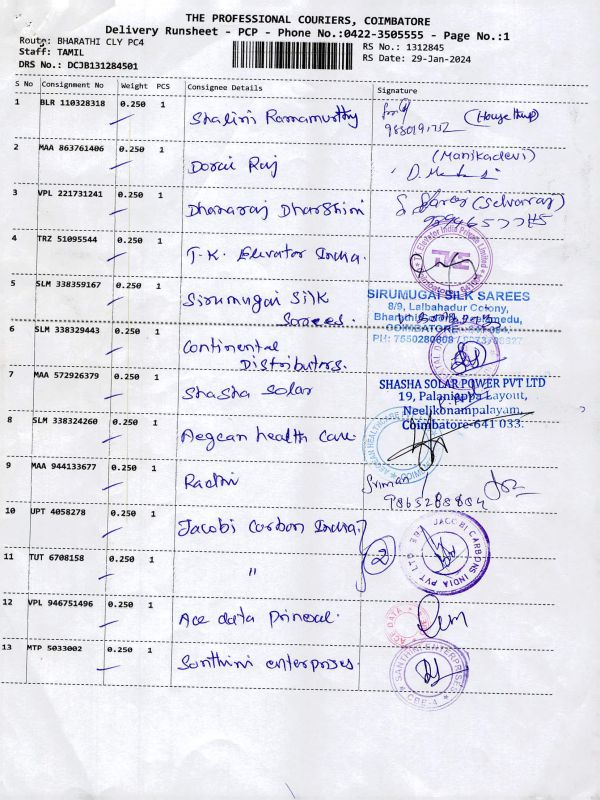 THE PROFESSIONAL COURIERS, COIMBATORE
Delivery Runsheet - PCP - Phone No.:0422-3505555 - Page No.:1
Route: BHARATHI CLY PC4
RS No.: 1312845
Staff: TAMIL
RS Date: 29-Jan-2024
DRS No.: DCJB131284501
S No Consignment No Weight PCS Consignee Details Signature
1 BLR 110328318 0.250 1 Shalini Ramamurthy (House
2 MAA 863761406 0.250 1 Dorai Raj (Manikadevi)
3 VPL 221731241 0.250 1 Dhanaraj Dharshini (Selvaraj)
4 TRZ 51095544 0.250 1 T.K. Elevator India. Elevator India Private Limited
5 SLM 338359167 0.250 1 Sirumugai Silk Sarees.
SIRUMUGAI SILK SAREES
8/9, Lalbahadur Colony,
COIMBATORE
PH: 7550280608
6 SLM 338329443 0.250 1 Continental Distributors.
7 MAA 572926379 0.250 1 Shasha Solar
SHASHA SOLAR POWER PVT LTD
19, Palaniappa Layout,
Neelikonampalayam,
Coimbatore-641 033.
8 SLM 338324260 0.250 1 Aegean health care
9 MAA 944133677 0.250 1 Sriman
9865288884
10 UPT 4058278 0.250 1 Jacobi Carbon India. 2 JACOBI CARBONS INDIA PVT LTD
11 TUT 6708158 0.250 1 "
12 VPL 946751496 0.250 1 Ace data ACE DATA
13 MTP 5033002 0.250 1 Santhini enterprises. SANTHINI ENTERPRISES CBE-4